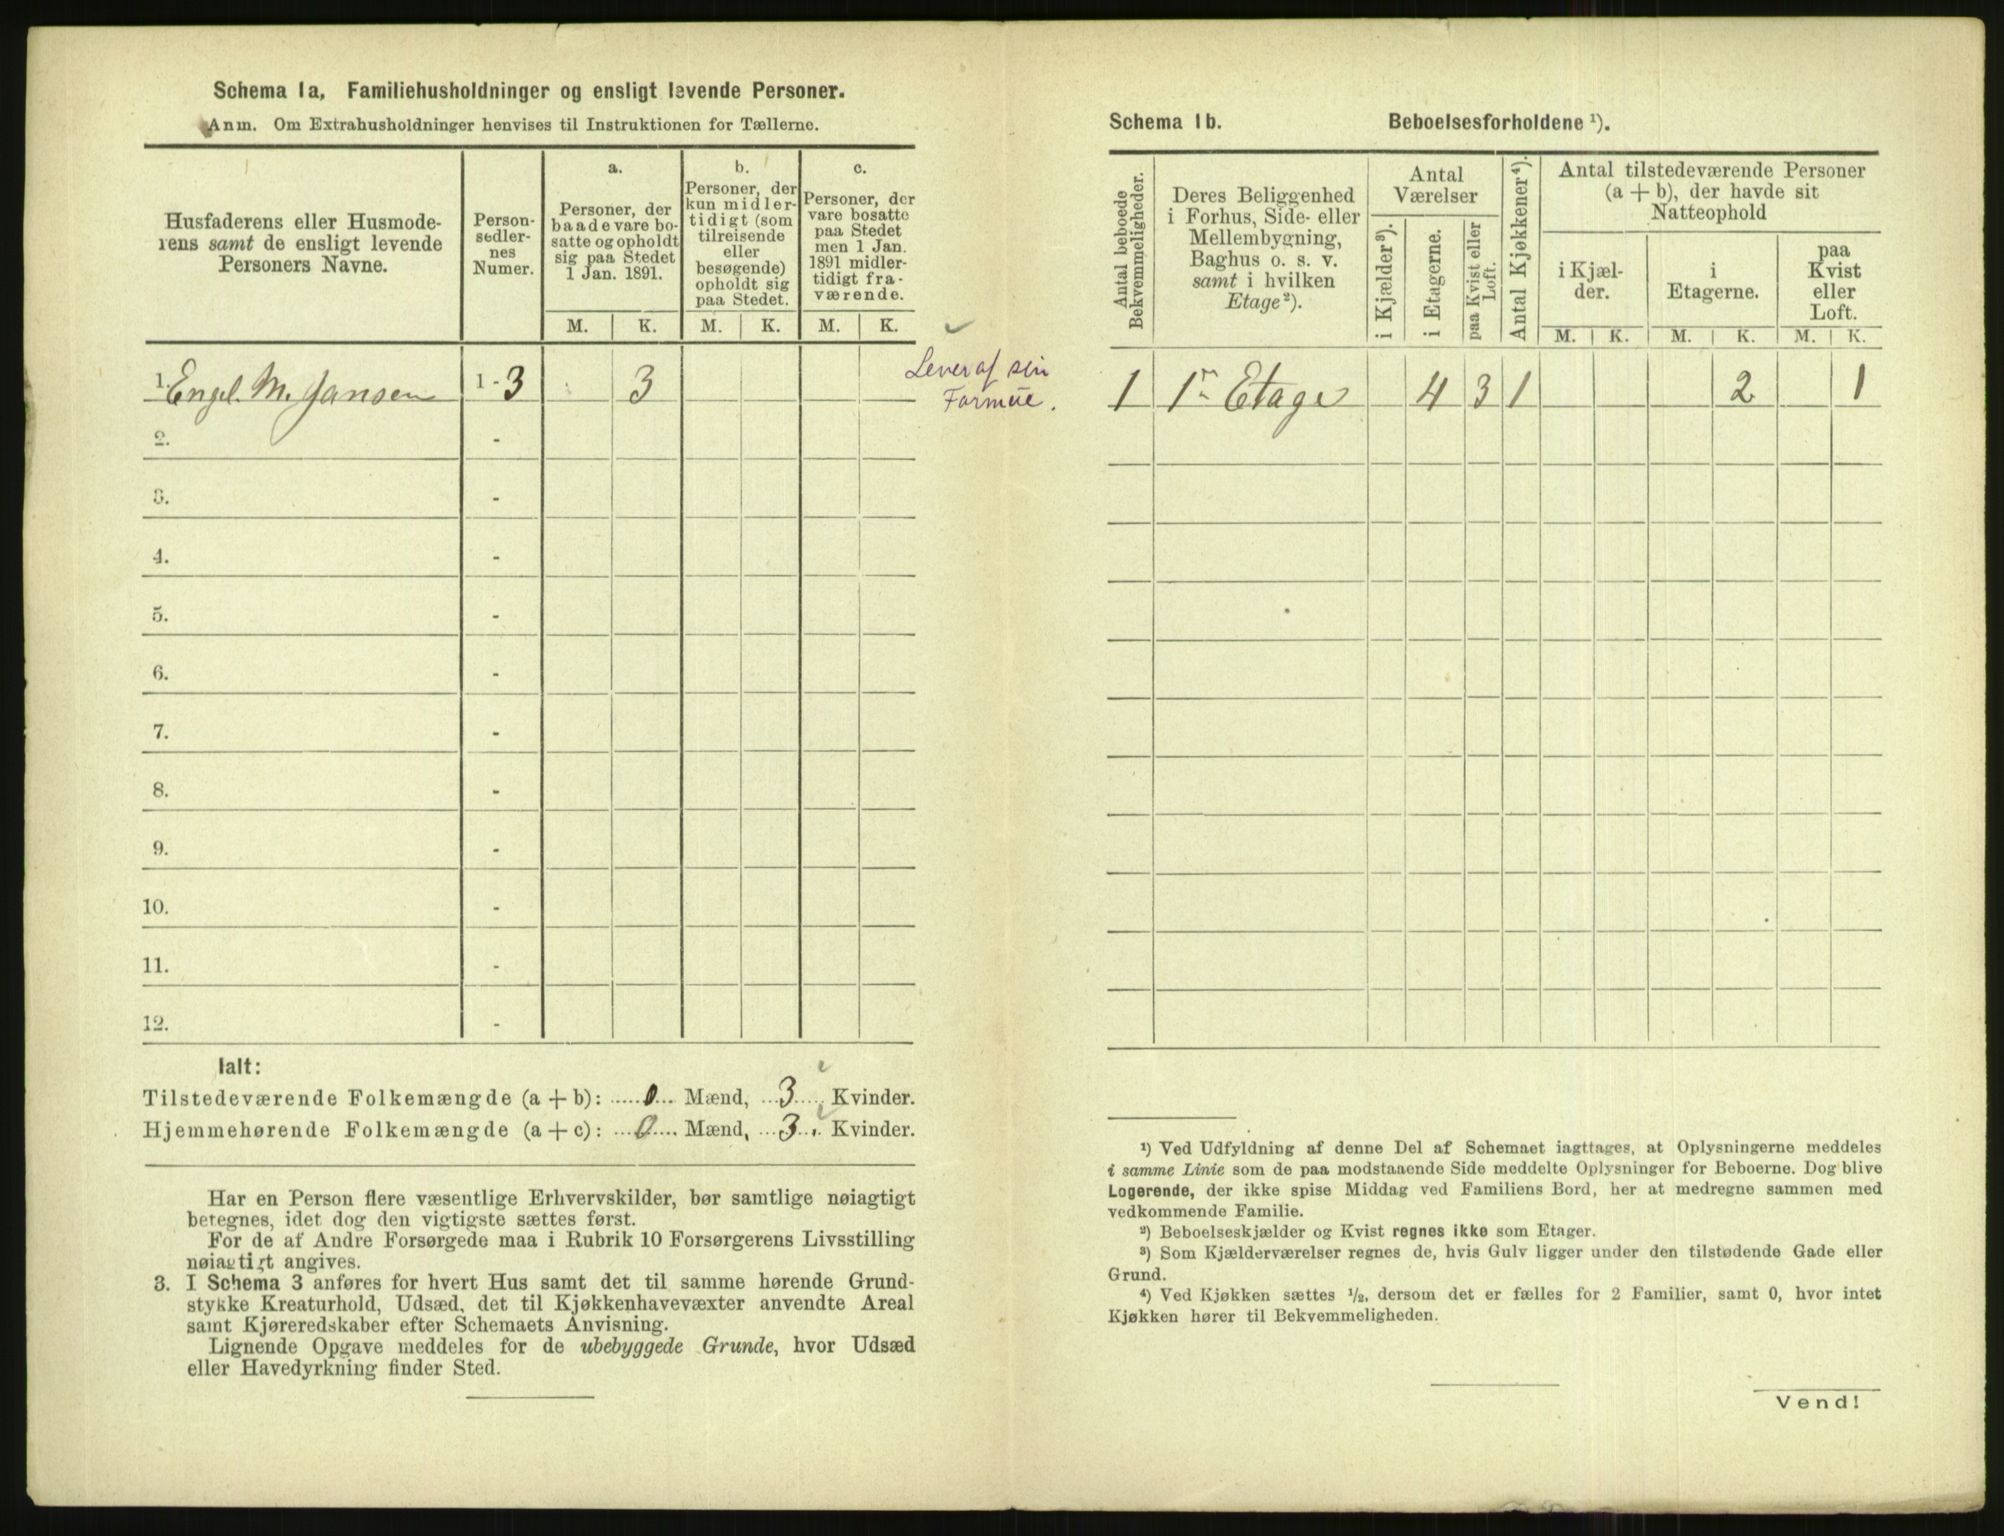 Schema 1a. Familiehusholdninger og ensligt levende Personer.
Anm. Om Extrahusholdninger henvises til Instruktionen for Tællerne.
Husfaderens eller Husmode-
rens samt de ensligt levende
Personers Navne.
Person-
sedler-
nes
Numer.
a.
Personer, der
baade vare bo-
satte og opholdt
sig paa Stedet
1 Jan. 1891.
b.
Personer, der
kun midler-
tidigt (som
tilreisende
eller
besøgende)
opholdt sig
paa Stedet.
c.
Personer, der
vare bosatte
paa Stedet
men 1 Jan.
1891 midler-
tidigt fra-
værende.
M. K. M. K. M. K.
1. Engel. M. Jansen 1 - 3 3
Lever af sin
Formue.
2. -
3. -
4. -
5. -
6. -
7. -
8. -
9. -
10. -
11. -
12. -
Ialt:
Tilstedeværende Folkemængde (a + b): 0 Mænd, 3 Kvinder.
Hjemmehørende Folkemængde (a + c): 0 Mænd, 3 Kvinder.
Har en Person flere væsentlige Erhvervskilder, bør samtlige nøiagtigt
betegnes, idet dog den vigtigste sættes først.
For de af Andre Forsørgede maa i Rubrik 10 Forsørgerens Livsstilling
nøiagtigt angives.
3. I Schema 3 anføres for hvert Hus samt det til samme hørende Grund-
stykke Kreaturhold, Udsæd, det til Kjøkkenhavevæxter anvendte Areal
samt Kjøreredskaber efter Schemaets Anvisning.
Lignende Opgave meddeles for de ubebyggede Grunde, hvor Udsæd
eller Havedyrkning finder Sted.
Schema 1b. Beboelsesforholdene ¹).
Antal beboede
Bekvemmeligheder.
Deres Beliggenhed
i Forhus, Side- eller
Mellembygning,
Baghus o. s. v.
samt i hvilken
Etage²).
Antal
Værelser
i Kjælder³).
i Etagerne.
paa Kvist eller
Loft.
Antal Kjøkkener⁴).
Antal tilstedeværende Personer
(a + b), der havde sit
Natteophold
i Kjæl-
der.
i
Etagerne.
paa
Kvist
eller
Loft.
M. K. M. K. M. K.
1 1ʳ Etage 4 3 1 2 1
¹) Ved Udfyldning af denne Del af Schemaet iagttages, at Oplysningerne meddeles
i samme Linie som de paa modstaaende Side meddelte Oplysninger for Beboerne. Dog blive
Logerende, der ikke spise Middag ved Familiens Bord, her at medregne sammen med
vedkommende Familie.
²) Beboelseskjælder og Kvist regnes ikke som Etager.
³) Som Kjælderværelser regnes de, hvis Gulv ligger under den tilstødende Gade eller
Grund.
⁴) Ved Kjøkken sættes ½, dersom det er fælles for 2 Familier, samt 0, hvor intet
Kjøkken hører til Bekvemmeligheden.
Vend!